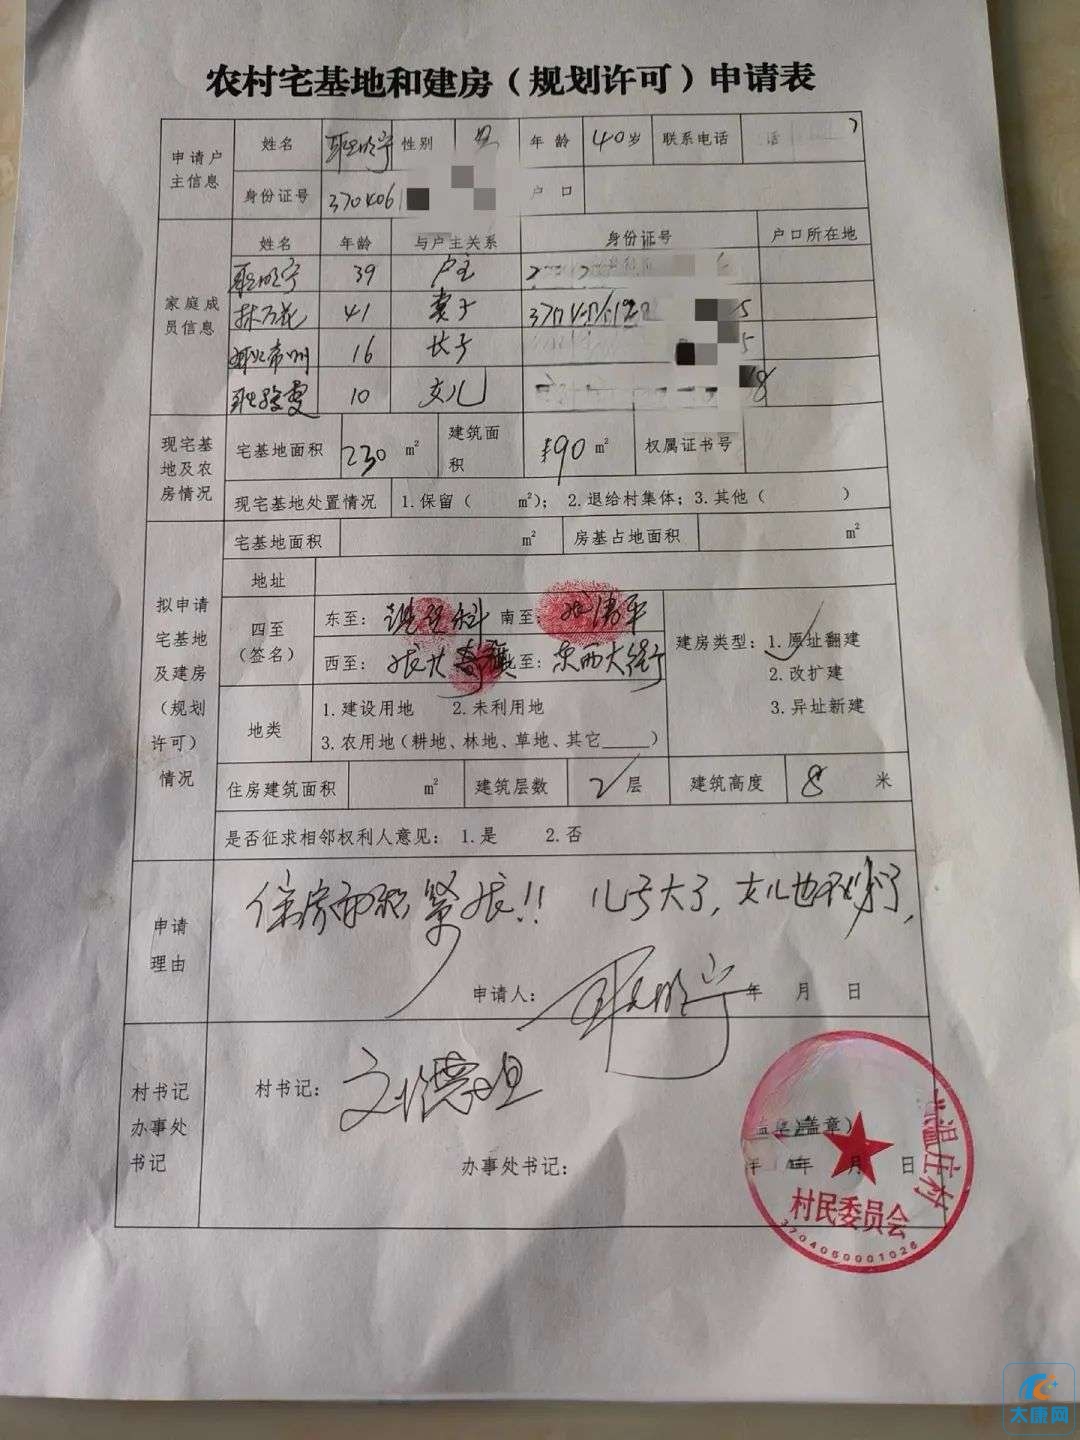 农村宅基地和建房（规划许可）申请表
申请户主信息 姓名 耿晓宁 性别 男 年龄 40岁 联系电话
身份证号 370406 户口
家庭成员信息 姓名 年龄 与户主关系 身份证号 户口所在地
耿晓宁 39 户主
41 妻子
16 长子
10 女儿
现宅基地及农房情况 宅基地面积 230 m² 建筑面积 190 m² 权属证书号
现宅基地处置情况 1.保留（ m²）； 2.退给村集体；3.其他（ ）
拟申请宅基地及建房（规划许可）情况 宅基地面积 m² 房基占地面积 m²
地址
四至（签名） 东至： 南至：
西至： 至：东西大街
建房类型：1.原址翻建
2.改扩建
3.异址新建
地类 1.建设用地 2.未利用地
3.农用地（耕地、林地、草地、其它_____）
住房建筑面积 m² 建筑层数 2 层 建筑高度 8 米
是否征求相邻权利人意见： 1.是 2.否
申请理由 住房面积紧张!! 儿子大了,女儿也不小了,
申请人： 耿晓宁 年 月 日
村书记办事处书记 村书记：
办事处书记：
盖章）
年 月 日
温庄村
村民委员会
3704060001026
太康网